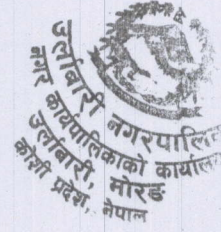 उर्लाबारी नगरपालि
नगर कार्यपालिकाको कार्याल
उर्लाबारी, मोरङ
कोशी प्रदेश, नेपाल